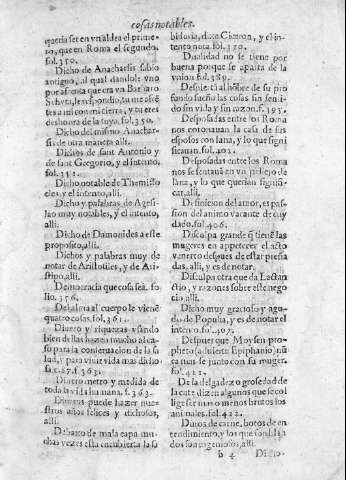 cosas notables.
queria ser en vn aldea el prime-
ro, que en Roma el segundo.
fol. 350.
Dicho de Anacharsis sabio
antiguo, al qual dandole vno
por afrenta que era vn Barbaro
Schyta, le respondio, tu me afren
tera mi con mi tierra, y tu eres
deshonra de la tuya. fol. 350.
Dicho del mismo Anachar-
sis de otra manera alli.
Dichos de sant Antonio y
de sant Gregorio, y el intento.
fol. 351.
Dicho notable de Themisto
cles, y el intento, alli.
Dicho y palabras de Agesi-
lao muy notables, y el intento,
alli.
Dicho de Damonides a este
proposito, alli.
Dichos y palabras muy de
notar de Aristotiles, y de Ari-
stipo, alli.
Democracia que cosa sea. fo-
lio. 356.
De la alma al cuerpo le viene
quatro cosas. fol. 361.
Dinero y riquezas vsando
bien dellas hazen mucho al ca-
so para la conseruacion de la sa
lud, y para viuir vida mas dicho
sa. fol. 363.
Diametro metro y medida de
toda la vida humana. f. 363.
Dineros puede hazer nue-
stros años felices y dichosos,
alli.
Debaxo de mala capa mu-
chas vezes esta encubierta la sa
biduria, dize Ciceron, y el in-
tento nota. fol. 380.
Dualidad no se tiene por
buena porque se aparta de la
vnion fol. 389.
Despierta al hõbre de su pro
fundo sueño las cosas sin senti
do sin vida y sin razon. f. 395.
Desposadas entre los Roma
nos coronauan la casa de sus
esposos con lana, y lo que signi
ficauan. fol. 402.
Desposadas entre los Roma
nos se sentauã en vn pellejo de
lana, y lo que querian signifi-
car, alli.
Definicion del amor, es pas-
sion del animo vacante de cuy
dado. fol. 406.
Disculpa grande q̃ tienẽ las
mugeres en appetecer el acto
venereo despues de estar preña
das, alli, y es de notar.
Disculpa otra que da Lactan
cio, y razones sobre este nego
cio, alli.
Dicho muy gracioso y agu-
do de Populia, y es de notar el
intento. fol. 407.
Despues que Moysen pro-
pheto (assiente Epiphanio) nũ
ca mas se junto con su muger.
fol. 411.
De la delgadez o grosedad de
la cute dizen algunos que se col
lige ser mas o menos brutos los
animales. fol. 422.
Duros de carne, botos de en
tendimiento, y los que son blan
dos son ingeniosos, alli.
b 4 Dicho-